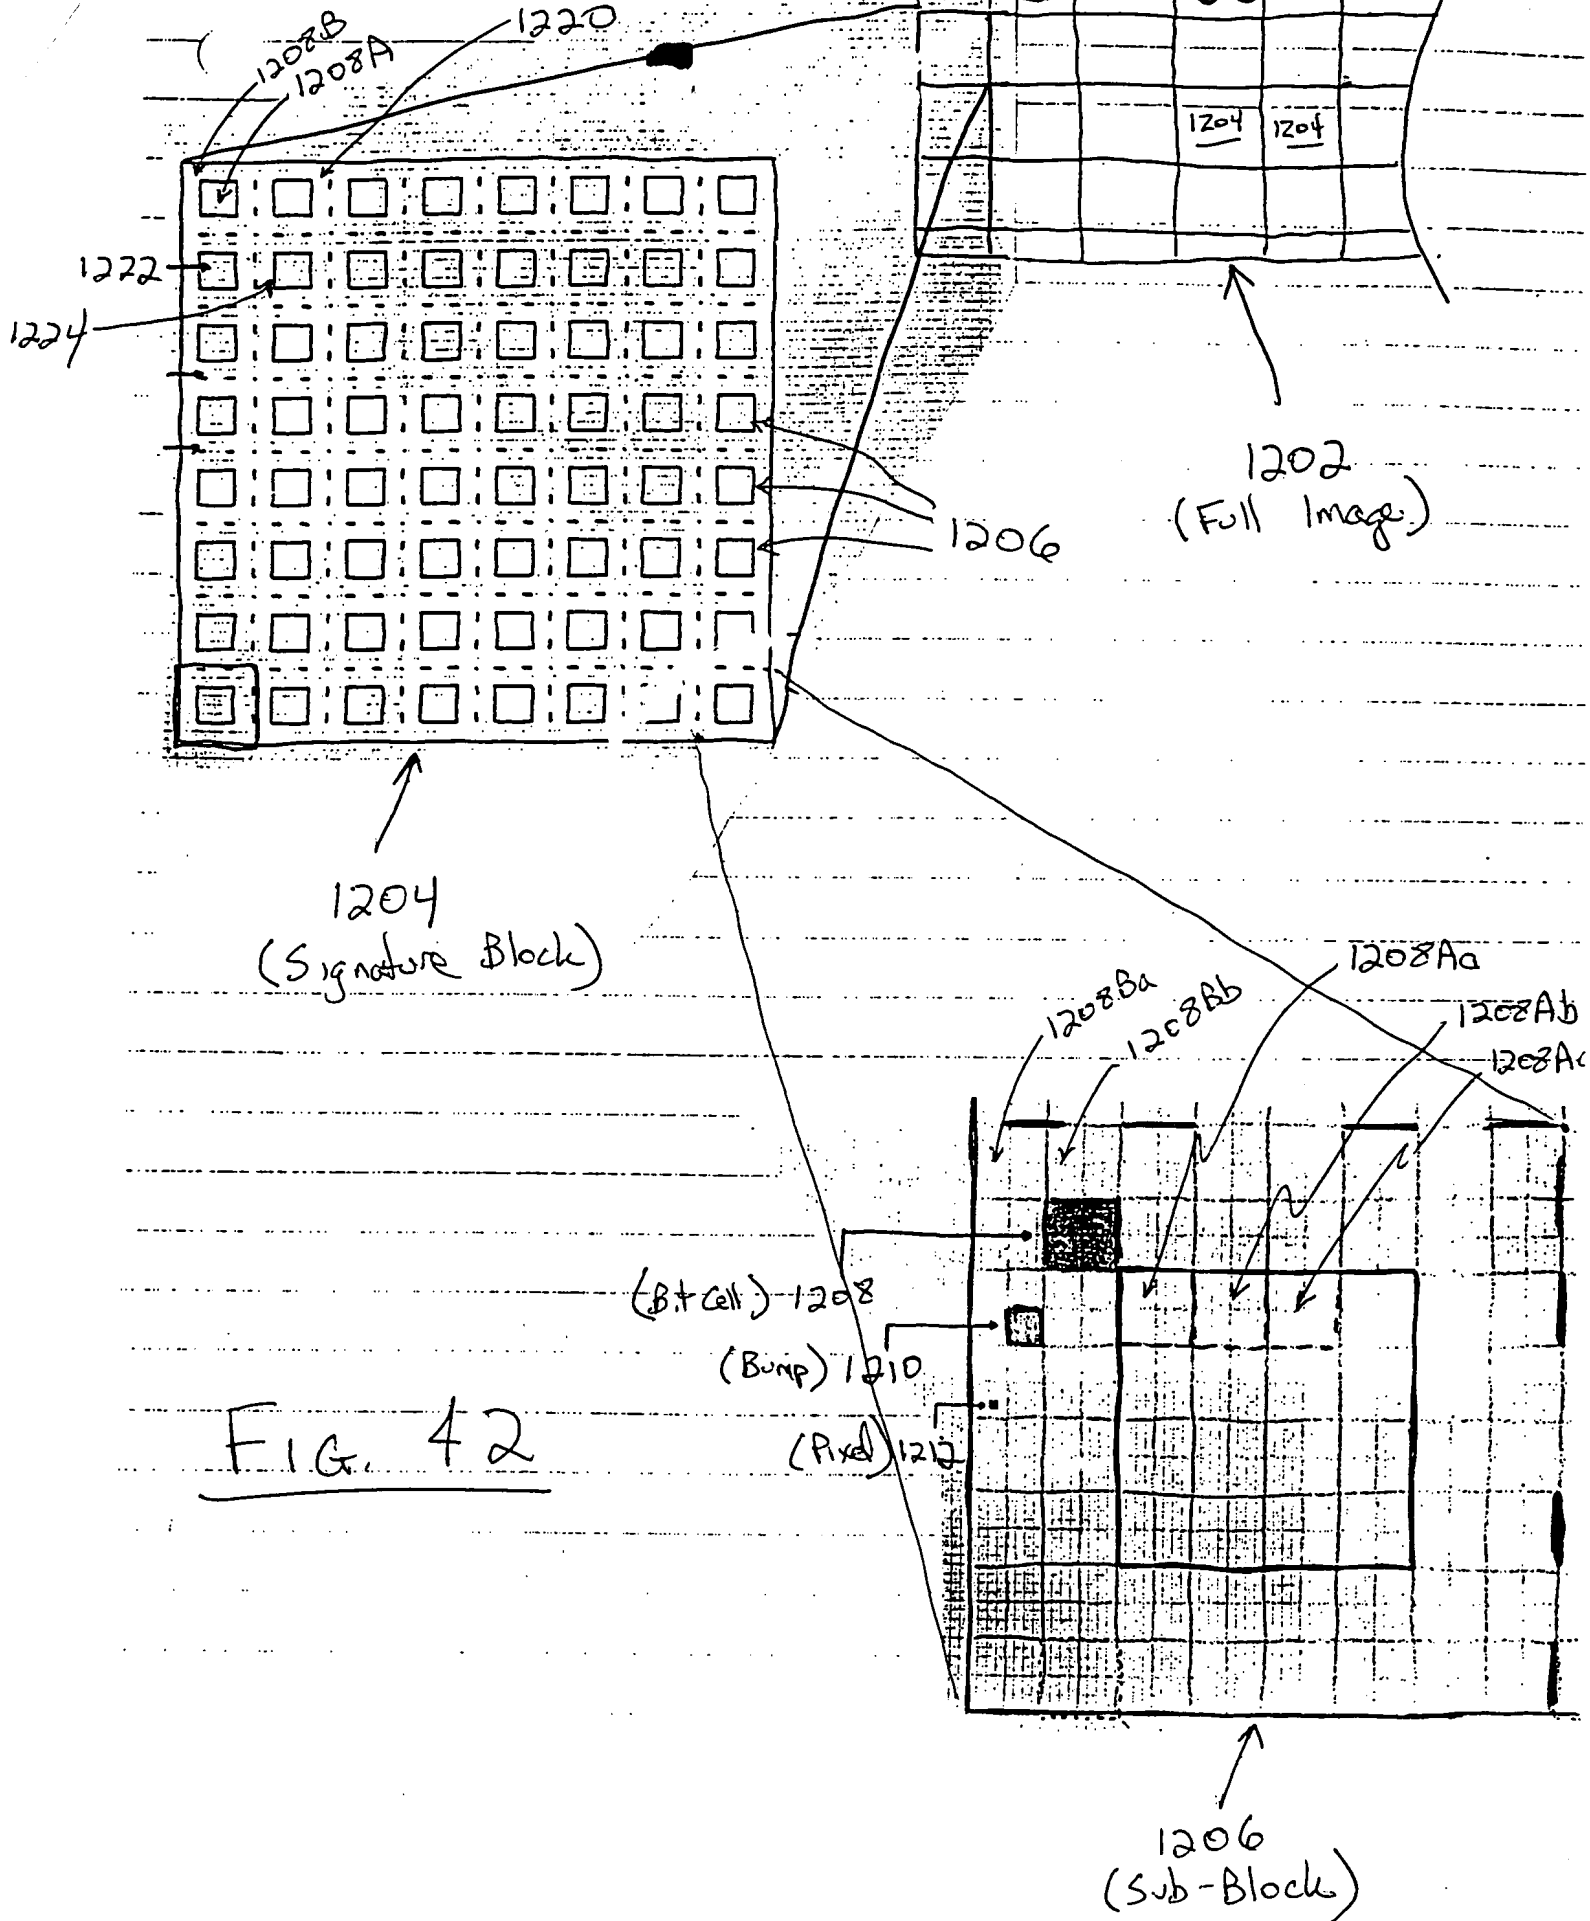 1208B
1208A
1220
1204 1204
1222
1224
1202
(Full Image)
1206
1204
(Signature Block)
1208Ba
1208Bb
1208Aa
1208Ab
(Bit Cell) 1208
(Bump) 1210
(Pixel) 1212
FIG. 42
1206
(Sub-Block)